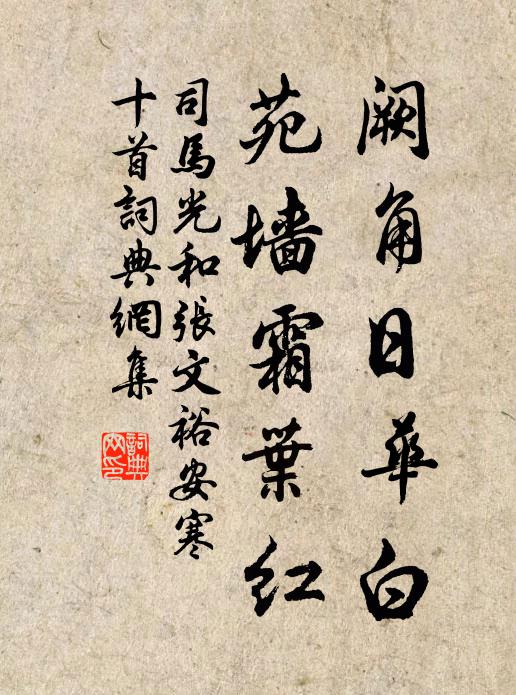 阙角日华白
苑墙霜葉红
司馬光和張文裕安寒
十首詞典網集
詞典网印